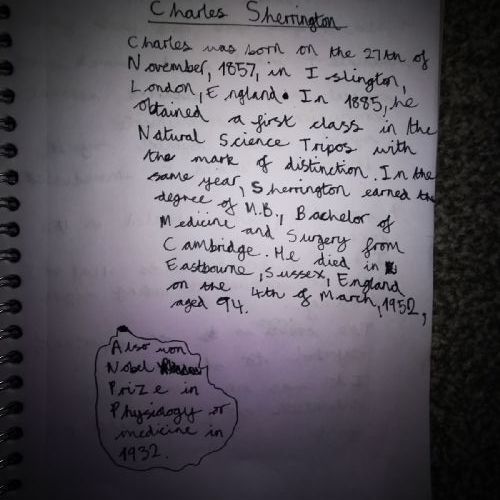 Charles Sherrington
Charles was born on the 27th of
November, 1857, in Islington,
London, England. In 1885, he
obtained a first class in the
Natural Science Tripos with
the mark of distinction. In the
same year, Sherrington earned the
degree of M.B., Bachelor of
Medicine and Surgery from
Cambridge. He died in
Eastbourne, Sussex, England
on the 4th of March, 1952,
aged 94.
Also won
Nobel
Prize in
Physiology or
medicine in
1932.